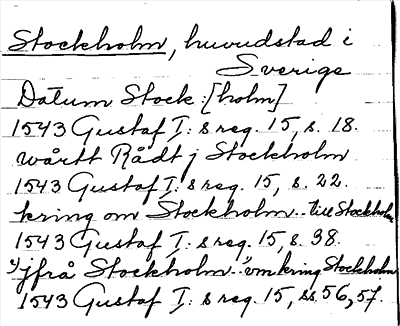 Stockholm, huvudstad i
Sverige
Datum Stock: [holm]
1543 Gustaf I: s reg. 15, s. 18.
wårtt Rådt j Stockholm
1543 Gustaf I: s reg. 15, s. 22.
kring om Stockholm.. till Stockholm
1543 Gustaf I: s reg. 15, s. 38.
jfrå Stockholm.. omkring Stockholm
1543 Gustaf I: s reg. 15, ss 56, 57.